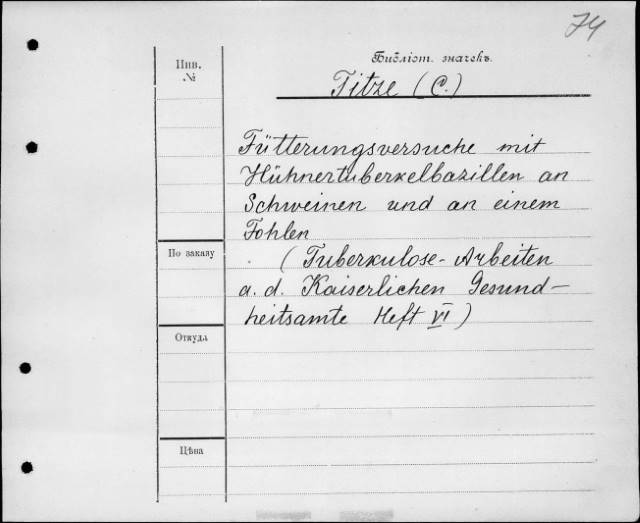 74
Инв.
№
Библіот. значекъ.
Titze (C.)
Fütterungsversuche mit
Hühnertuberkelbazillen an
Schweinen und an einem
Fohlen
По заказу
(Tuberkulose-Arbeiten
a. d. Kaiserlichen Gesund-
heitsamte Heft VI)
Откуда
Цѣна